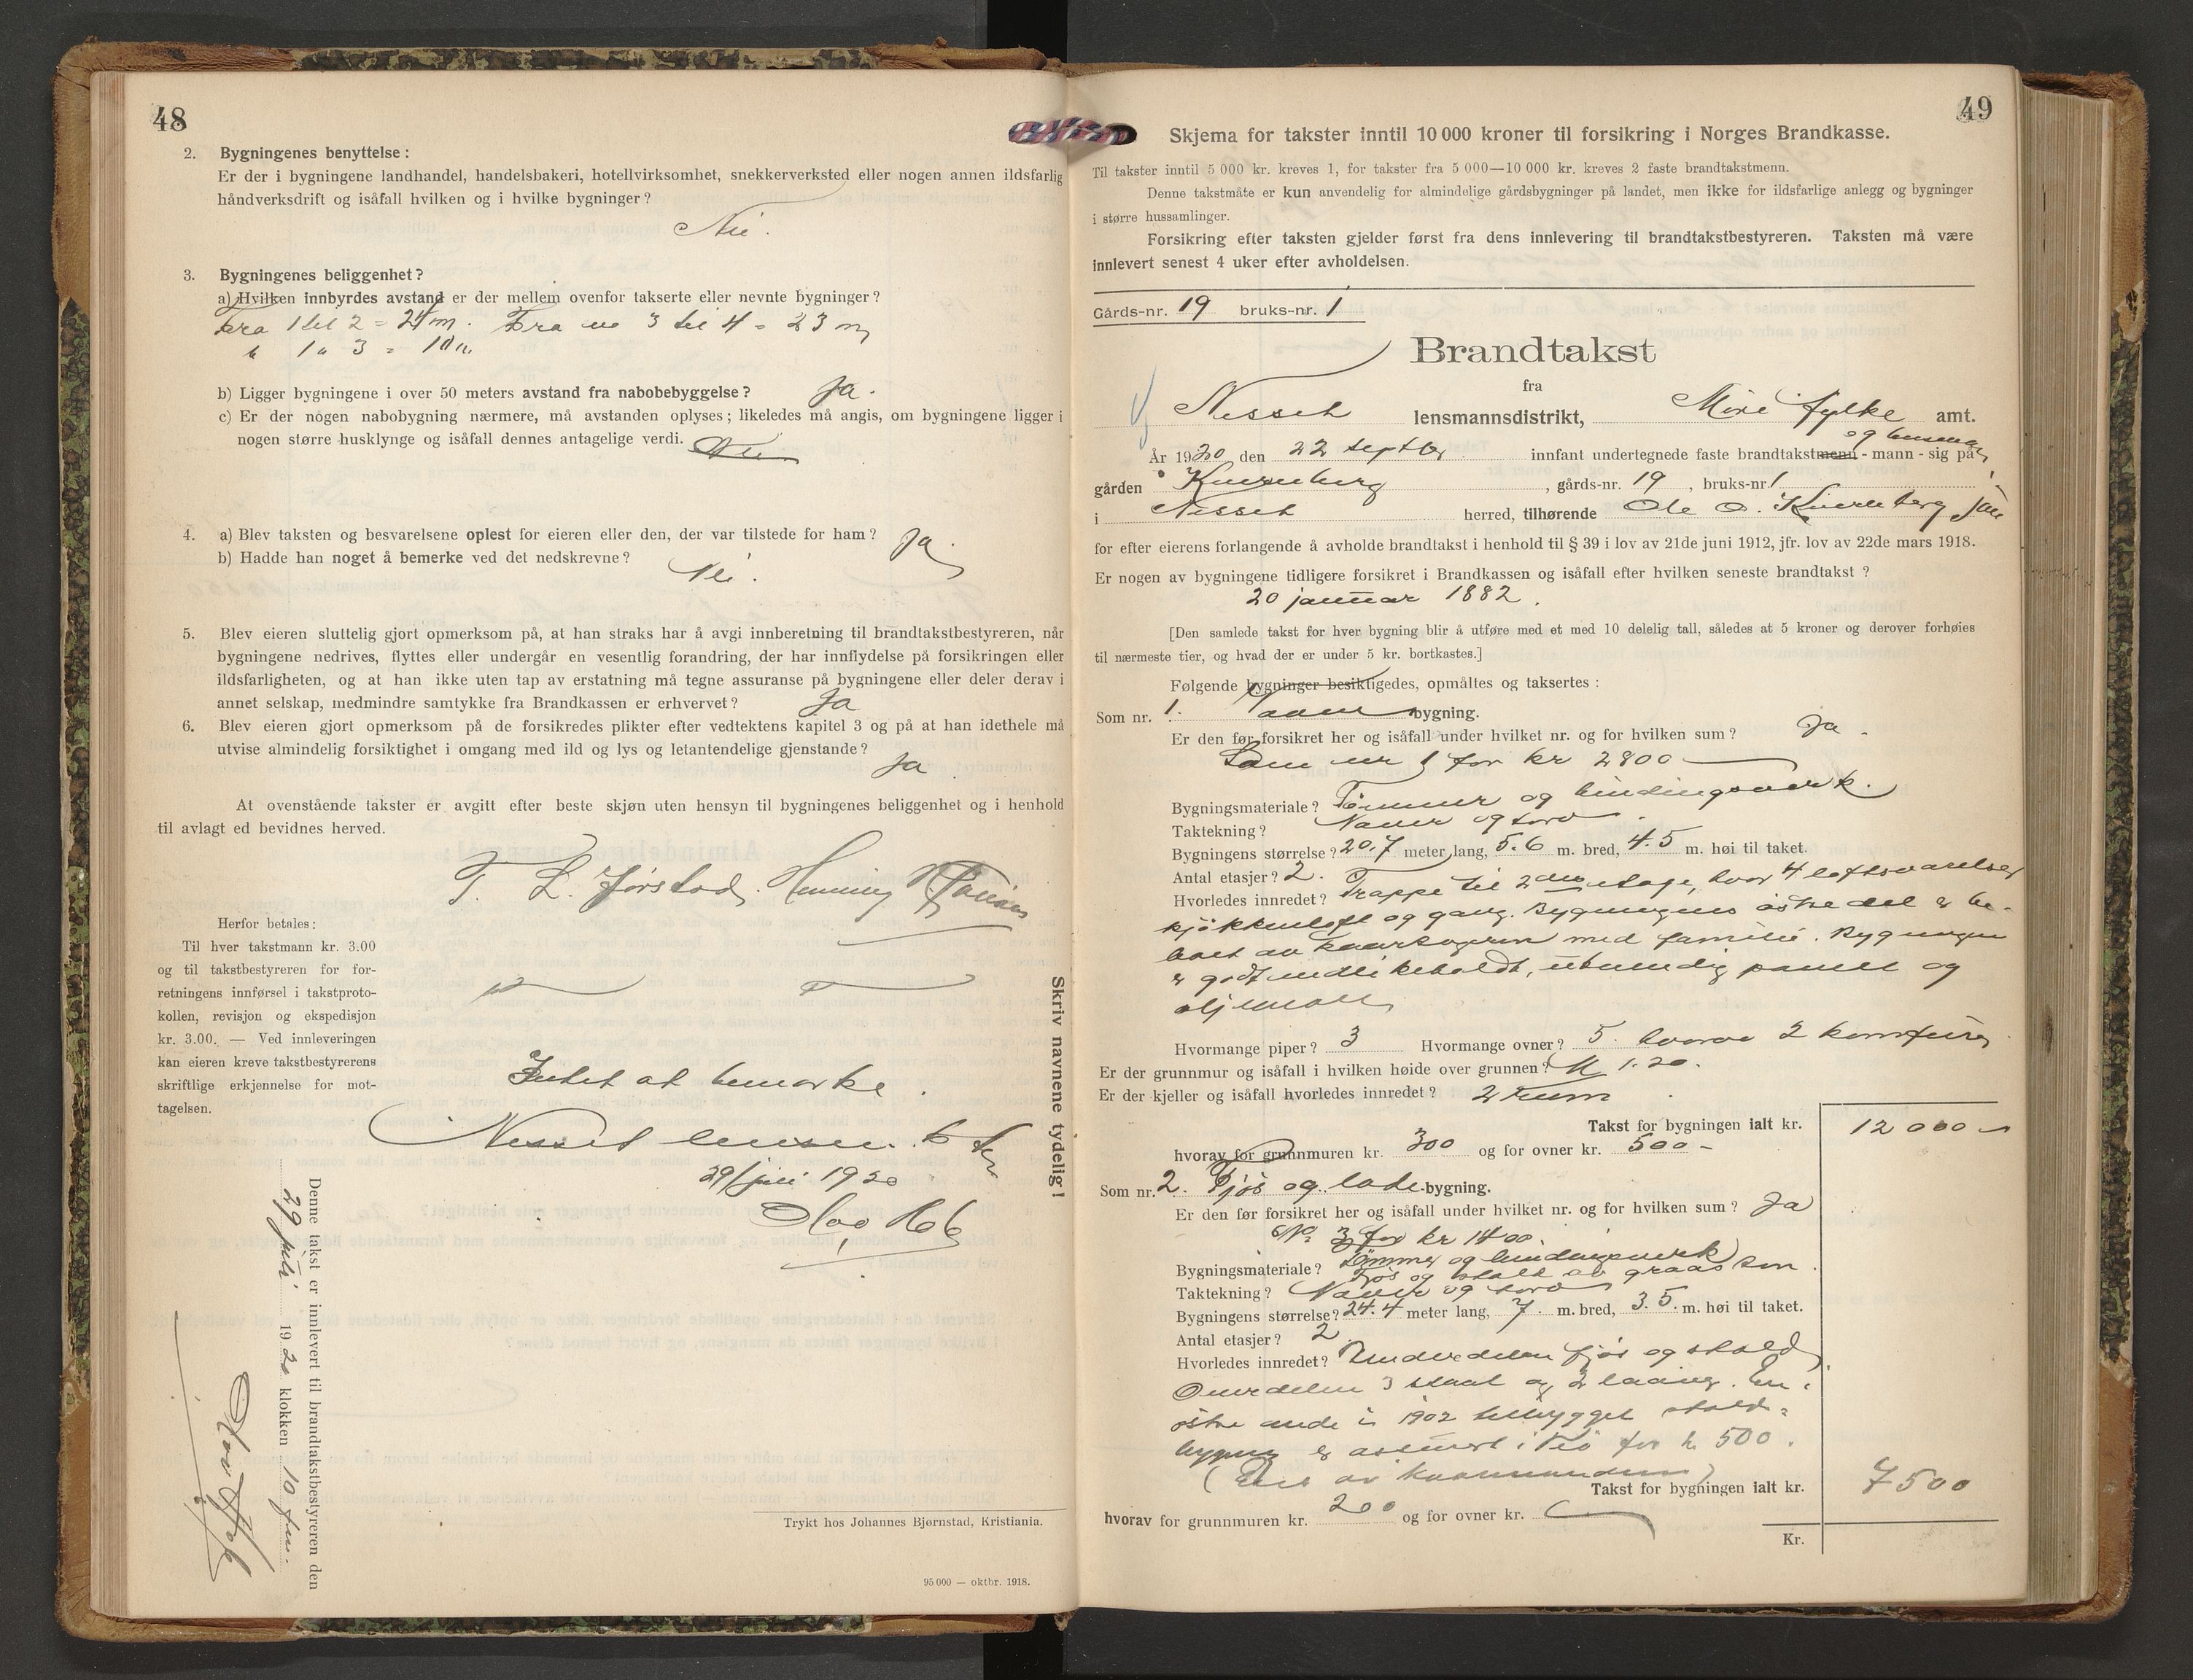 48
2. Bygningenes benyttelse:
Er der i bygningene landhandel, handelsbakeri, hotellvirksomhet, snekkerverksted eller nogen annen ildsfarlig
håndverksdrift og isåfall hvilken og i hvilke bygninger?
Nei.
3. Bygningenes beliggenhet?
a) Hvilken innbyrdes avstand er der mellem ovenfor takserte eller nevnte bygninger?
Fra 1 til 2 = 24 m. Fra no 3 til 4 = 23 m
" 1 " 3 = 10 m
b) Ligger bygningene i over 50 meters avstand fra nabobebyggelse? Ja.
c) Er der nogen nabobygning nærmere, må avstanden oplyses; likeledes må angis, om bygningene ligger i
nogen større husklynge og isåfall dennes antagelige verdi. Nei
4. a) Blev taksten og besvarelsene oplest for eieren eller den, der var tilstede for ham? Ja.
b) Hadde han noget å bemerke ved det nedskrevne? Nei.
5. Blev eieren sluttelig gjort opmerksom på, at han straks har å avgi innberetning til brandtakstbestyreren, når
bygningene nedrives, flyttes eller undergår en vesentlig forandring, der har innflydelse på forsikringen eller
ildsfarligheten, og at han ikke uten tap av erstatning må tegne assuranse på bygningene eller deler derav i
annet selskap, medmindre samtykke fra Brandkassen er erhvervet? Ja
6. Blev eieren gjort opmerksom på de forsikredes plikter efter vedtektens kapitel 3 og på at han idethele må
utvise almindelig forsiktighet i omgang med ild og lys og letantendelige gjenstande?
Ja.
At ovenstående takster er avgitt efter beste skjøn uten hensyn til bygningenes beliggenhet og i henhold
til avlagt ed bevidnes herved.
T. L. Jørstad. Henning
Herfor betales:
Til hver takstmann kr. 3.00
og til takstbestyreren for for-
retningens innførsel i takstproto-
kollen, revisjon og ekspedisjon
kr. 3.00. — Ved innleveringen
kan eieren kreve takstbestyrerens
skriftlige erkjennelse for mot-
tagelsen.
Intet at bemerke.
Nesset lensm.
29/juli 1920
Skriv navnene tydelig!
Denne takst er innlevert til brandtakstbestyreren den
29 juli 1920 klokken 10 fm.
Trykt hos Johannes Bjørnstad, Kristiania.
95 000 — oktbr. 1918.
49
Skjema for takster inntil 10 000 kroner til forsikring i Norges Brandkasse.
Til takster inntil 5 000 kr. kreves 1, for takster fra 5 000—10 000 kr. kreves 2 faste brandtakstmenn.
Denne takstmåte er kun anvendelig for almindelige gårdsbygninger på landet, men ikke for ildsfarlige anlegg og bygninger
i større hussamlinger.
Forsikring efter taksten gjelder først fra dens innlevering til brandtakstbestyreren. Taksten må være
innlevert senest 4 uker efter avholdelsen.
Gårds-nr. 19 bruks-nr. 1
Brandtakst
fra
Nesset lensmannsdistrikt, Møre fylke amt.
og lensmann
År 1920 den 22 septbr innfant undertegnede faste brandtakstmenn - mann - sig på
gården Kvernberg, gårds-nr. 19, bruks-nr. 1
i Nesset herred, tilhørende Ole O. Kvernberg
for efter eierens forlangende å avholde brandtakst i henhold til § 39 i lov av 21de juni 1912, jfr. lov av 22de mars 1918.
Er nogen av bygningene tidligere forsikret i Brandkassen og isåfall efter hvilken seneste brandtakst?
20 januar 1882.
[Den samlede takst for hver bygning blir å utføre med et med 10 delelig tall, således at 5 kroner og derover forhøies
til nærmeste tier, og hvad der er under 5 kr. bortkastes.]
Følgende bygninger besiktigedes, opmåltes og taksertes:
Som nr. 1. Vaanebygning.
Er den før forsikret her og isåfall under hvilket nr. og for hvilken sum? Ja.
Som nr 1 for kr 2800
Bygningsmateriale? Tømmer og bindingsverk.
Taktekning? Næver og torv.
Bygningens størrelse? 20.7 meter lang, 5.6 m. bred, 4.5 m. høi til taket.
Antal etasjer? 2.
Hvorledes innredet? Trappe til 2den etage, hvor 4 loftsværelser
kjøkkenloft og gang. Bygningens østre del er be-
boet av kaarkogeren med familie. Bygningen
er godt vedlikeholdt, utvendig panelt og
oljemalt
Hvormange piper? 3 Hvormange ovner? 5. hvorav 2 komfurer
Er der grunnmur og isåfall i hvilken høide over grunnen? M 1.20.
Er der kjeller og isåfall hvorledes innredet? 2 rum.
Takst for bygningen ialt kr. 12000
hvorav for grunnmuren kr. 300 og for ovner kr. 500
Som nr. 2. Fjøs og lade bygning.
Er den før forsikret her og isåfall under hvilket nr. og for hvilken sum? Ja
No 3 for kr 1400.
Bygningsmateriale? Tømmer og bindingsverk
Fjøs og stald av graasten.
Taktekning? Næver og torv
Bygningens størrelse? 24.4 meter lang, 7. m. bred, 3.5. m. høi til taket.
Antal etasjer? 2
Hvorledes innredet? Underdelen fjøs og stald,
Overdelen 3 staal og 2 laaver. En i
østre ende i 1902 tilbygget stald-
bygning er assurert i for kr 500.
(Eies av kaarmanden)
Takst for bygningen ialt kr. 7500
hvorav for grunnmuren kr. 200 og for ovner kr.
Kr.